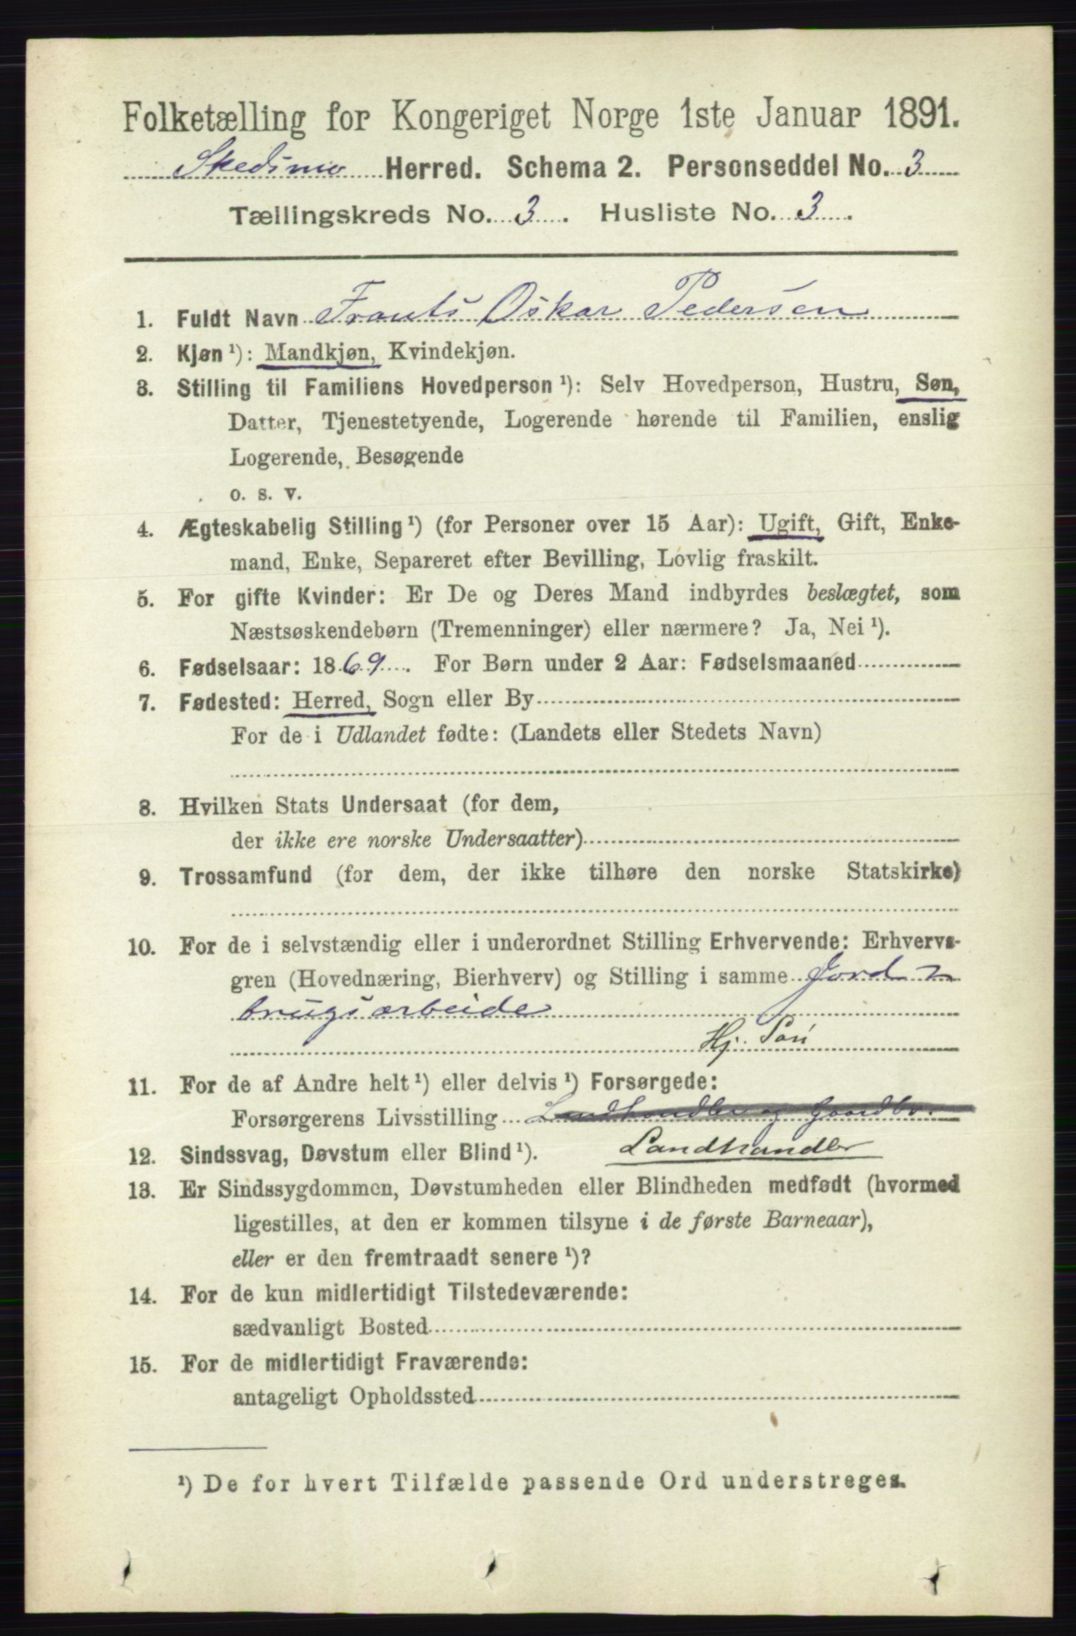 Folketælling for Kongeriget Norge 1ste Januar 1891.
Skedsmo Herred. Schema 2. Personseddel No. 3
Tællingskreds No. 3. Husliste No. 3.
1. Fuldt Navn Frants Oskar Pedersen
2. Kjøn ¹): Mandkjøn, Kvindekjøn.
3. Stilling til Familiens Hovedperson ¹): Selv Hovedperson, Hustru, Søn,
Datter, Tjenestetyende, Logerende hørende til Familien, enslig
Logerende, Besøgende
o. s. v.
4. Ægteskabelig Stilling ¹) (for Personer over 15 Aar): Ugift, Gift, Enke-
mand, Enke, Separeret efter Bevilling, Lovlig fraskilt.
5. For gifte Kvinder: Er De og Deres Mand indbyrdes beslægtet, som
Næstsøskendebørn (Tremenninger) eller nærmere? Ja, Nei ¹).
6. Fødselsaar: 1869. For Børn under 2 Aar: Fødselsmaaned
7. Fødested: Herred, Sogn eller By
For de i Udlandet fødte: (Landets eller Stedets Navn)
8. Hvilken Stats Undersaat (for dem,
der ikke ere norske Undersaatter)
9. Trossamfund (for dem, der ikke tilhøre den norske Statskirke)
10. For de i selvstændig eller i underordnet Stilling Erhvervende: Erhvervs-
gren (Hovednæring, Bierhverv) og Stilling i samme Jord
brugsarbeide
Hj. Søn
11. For de af Andre helt ¹) eller delvis ¹) Forsørgede:
Forsørgerens Livsstilling Landhandler og Gaardbr.
12. Sindssvag, Døvstum eller Blind ¹). Landhandler
13. Er Sindssygdommen, Døvstumheden eller Blindheden medfødt (hvormed
ligestilles, at den er kommen tilsyne i de første Barneaar),
eller er den fremtraadt senere ¹)?
14. For de kun midlertidigt Tilstedeværende:
sædvanligt Bosted
15. For de midlertidigt Fraværende:
antageligt Opholdssted
¹) De for hvert Tilfælde passende Ord understreges.